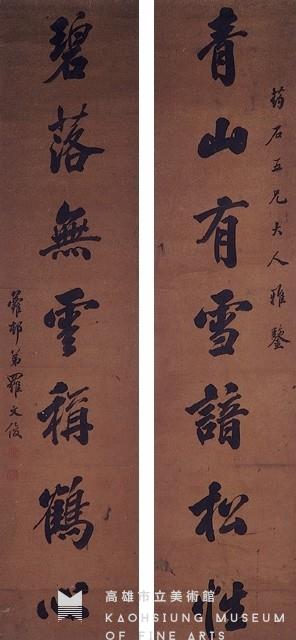 葯石五兄大人雅鑒
青山有雪諳松性
碧落無雲稱鶴心
蘿邨弟羅文俊
高雄市立美術館
KAOHSIUNG MUSEUM
OF FINE ARTS